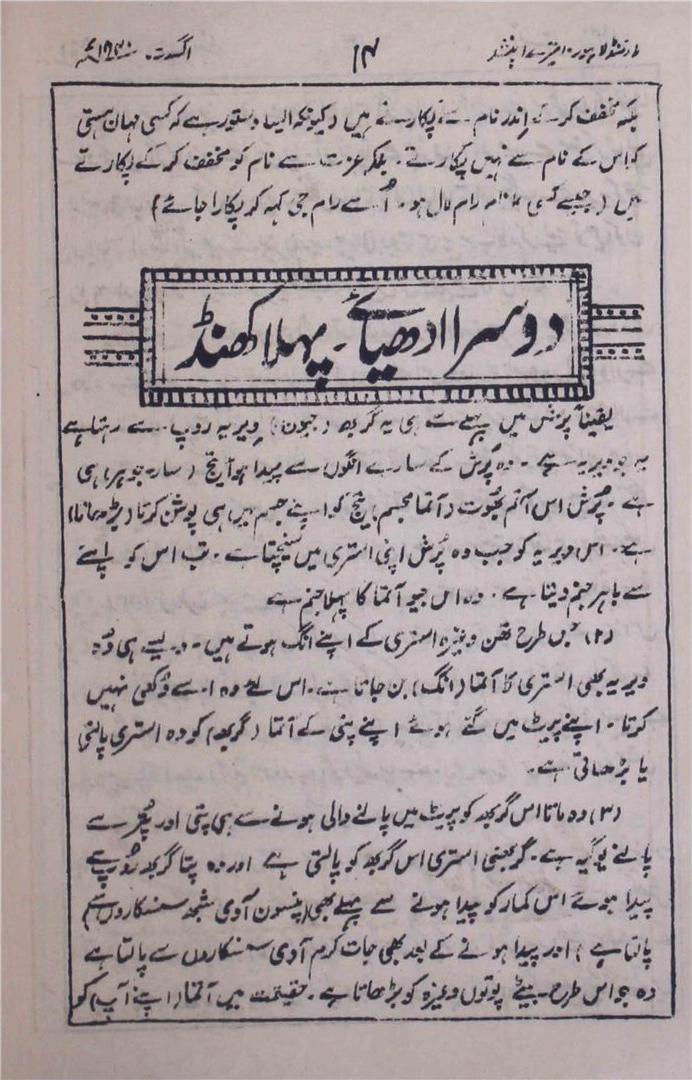 مارتنڈ لاہور۔ ایترے اپنشد ۱۴ اگست سنہ ۱۹۳۰ء
بلکہ مخفف کر کے اِندر نام سے پکارتے ہیں (کیونکہ ایسا دستور ہے کہ کسی مہان ہستی
کو اس کے نام سے نہیں پکارتے۔ بلکہ عزت سے نام کو مخفف کر کے پکارتے
ہیں (جیسے کسی کا نام رام لال ہو۔ اُسے رام جی کہہ کر پکارا جائے)
دوسرا ادھیائے۔ پہلا کھنڈ
یقیناً پُرش میں پہلے سے ہی یہ گربھ (جیون) ویریہ روپ سے رہتا ہے
یہ جو ویریہ ہے۔ وہ پُرش کے سارے انگوں سے پیدا ہوا تیج (سار۔ جوہر) ہی
ہے۔ پُرش اس آتم بھوت (آتما مجسم) تیج کو اپنے جسم میں ہی پوشن کرتا (بڑھاتا)
ہے۔ اس ویریہ کو جب وہ پُرش اپنی استری میں سینچتا ہے۔ تب اس کو اپنے
سے باہر جنم دیتا ہے۔ وہ اس جیو آتما کا پہلا جنم ہے
(۲) جس طرح تھن وغیرہ استری کے اپنے انگ ہوتے ہیں۔ ویسے ہی وہ
ویریہ بھی استری کا آتما (انگ) بن جاتا ہے۔ اس لئے وہ اسے دُکھی نہیں
کرتا۔ اپنے پیٹ میں گئے ہوئے اپنے پتی کے آتما (گربھ) کو وہ استری پالتی
یا بڑھاتی ہے۔
(۳) وہ ماتا اس گربھ کو پیٹ میں پالنے والی ہونے سے ہی پتی اور پُتر سے
پالنے یوگیہ ہے۔ گربھنی استری اس گربھ کو پالتی ہے اور وہ پتا گربھ رُوپ سے
پیدا ہوئے اس کمار کو پیدا ہونے سے پہلے بھی (پنسون آدی شبھ سنسکاروں سے)
پالتا ہے) اور پیدا ہونے کے بعد بھی جات کرم آدی سنسکاروں سے پالتا ہے
وہ جو اس طرح۔ بیٹے پوتوں وغیرہ کو بڑھاتا ہے۔ حقیقت میں آتما (اپنے آپ) کو